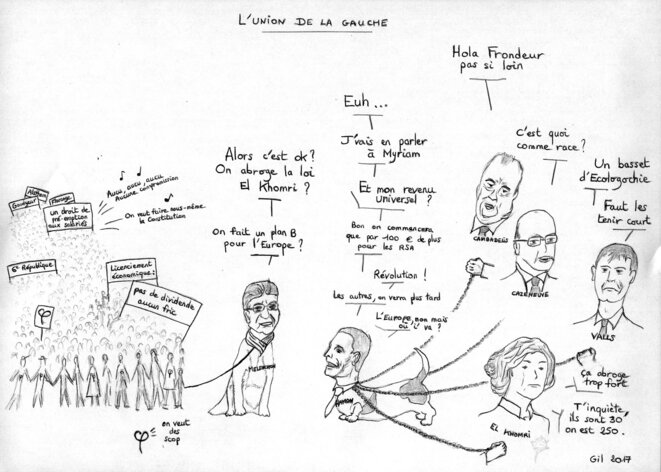 L'UNION DE LA GAUCHE
Hola Frondeur
pas si loin
Euh ...
J'vais en parler
à Myriam
Et mon revenu
universel ?
Bon on commencera
que par 100 € de plus
pour les RSA
Révolution !
Les autres, on verra plus tard
L'Europe, non mais
où l'va ?
C'est quoi
comme race ?
Un basset
d'Ecologochie
Faut les
tenir court
Alors c'est ok ?
On abroge la loi
El Khomri ?
On fait un plan B
pour l'Europe ?
Aucu, aucu, aucu
Aucune compromission
On veut faire nous-même
la Constitution
un droit de
pré-emption
aux salariés
6e République
Licenciement
économique :
pas de dividende
aucun fric
φ
on veut
des
scop
MELENCHON
HAMON
CAMBADELIS
CAZENEUVE
VALLS
EL KHOMRI
Ça abroge
trop fort
T'inquiète,
ils sont 30
on est 250.
Gil 2017